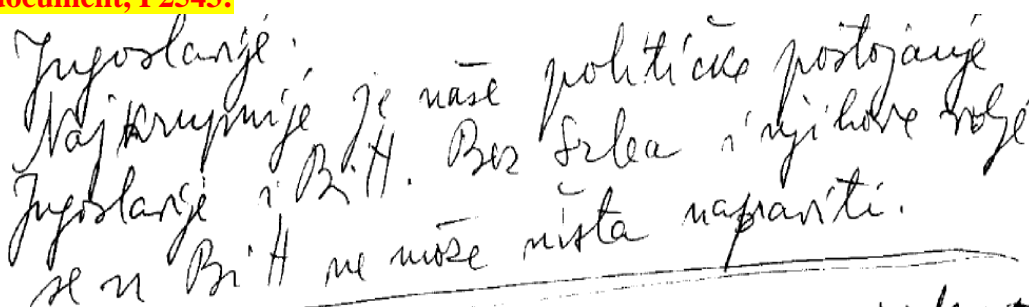 document, P2543:
Jugoslavije.
Najkrupnije je naše političko postojanje
Jugoslavije i BiH. Bez Srba i njihove volje
se u BiH ne može ništa napraviti.